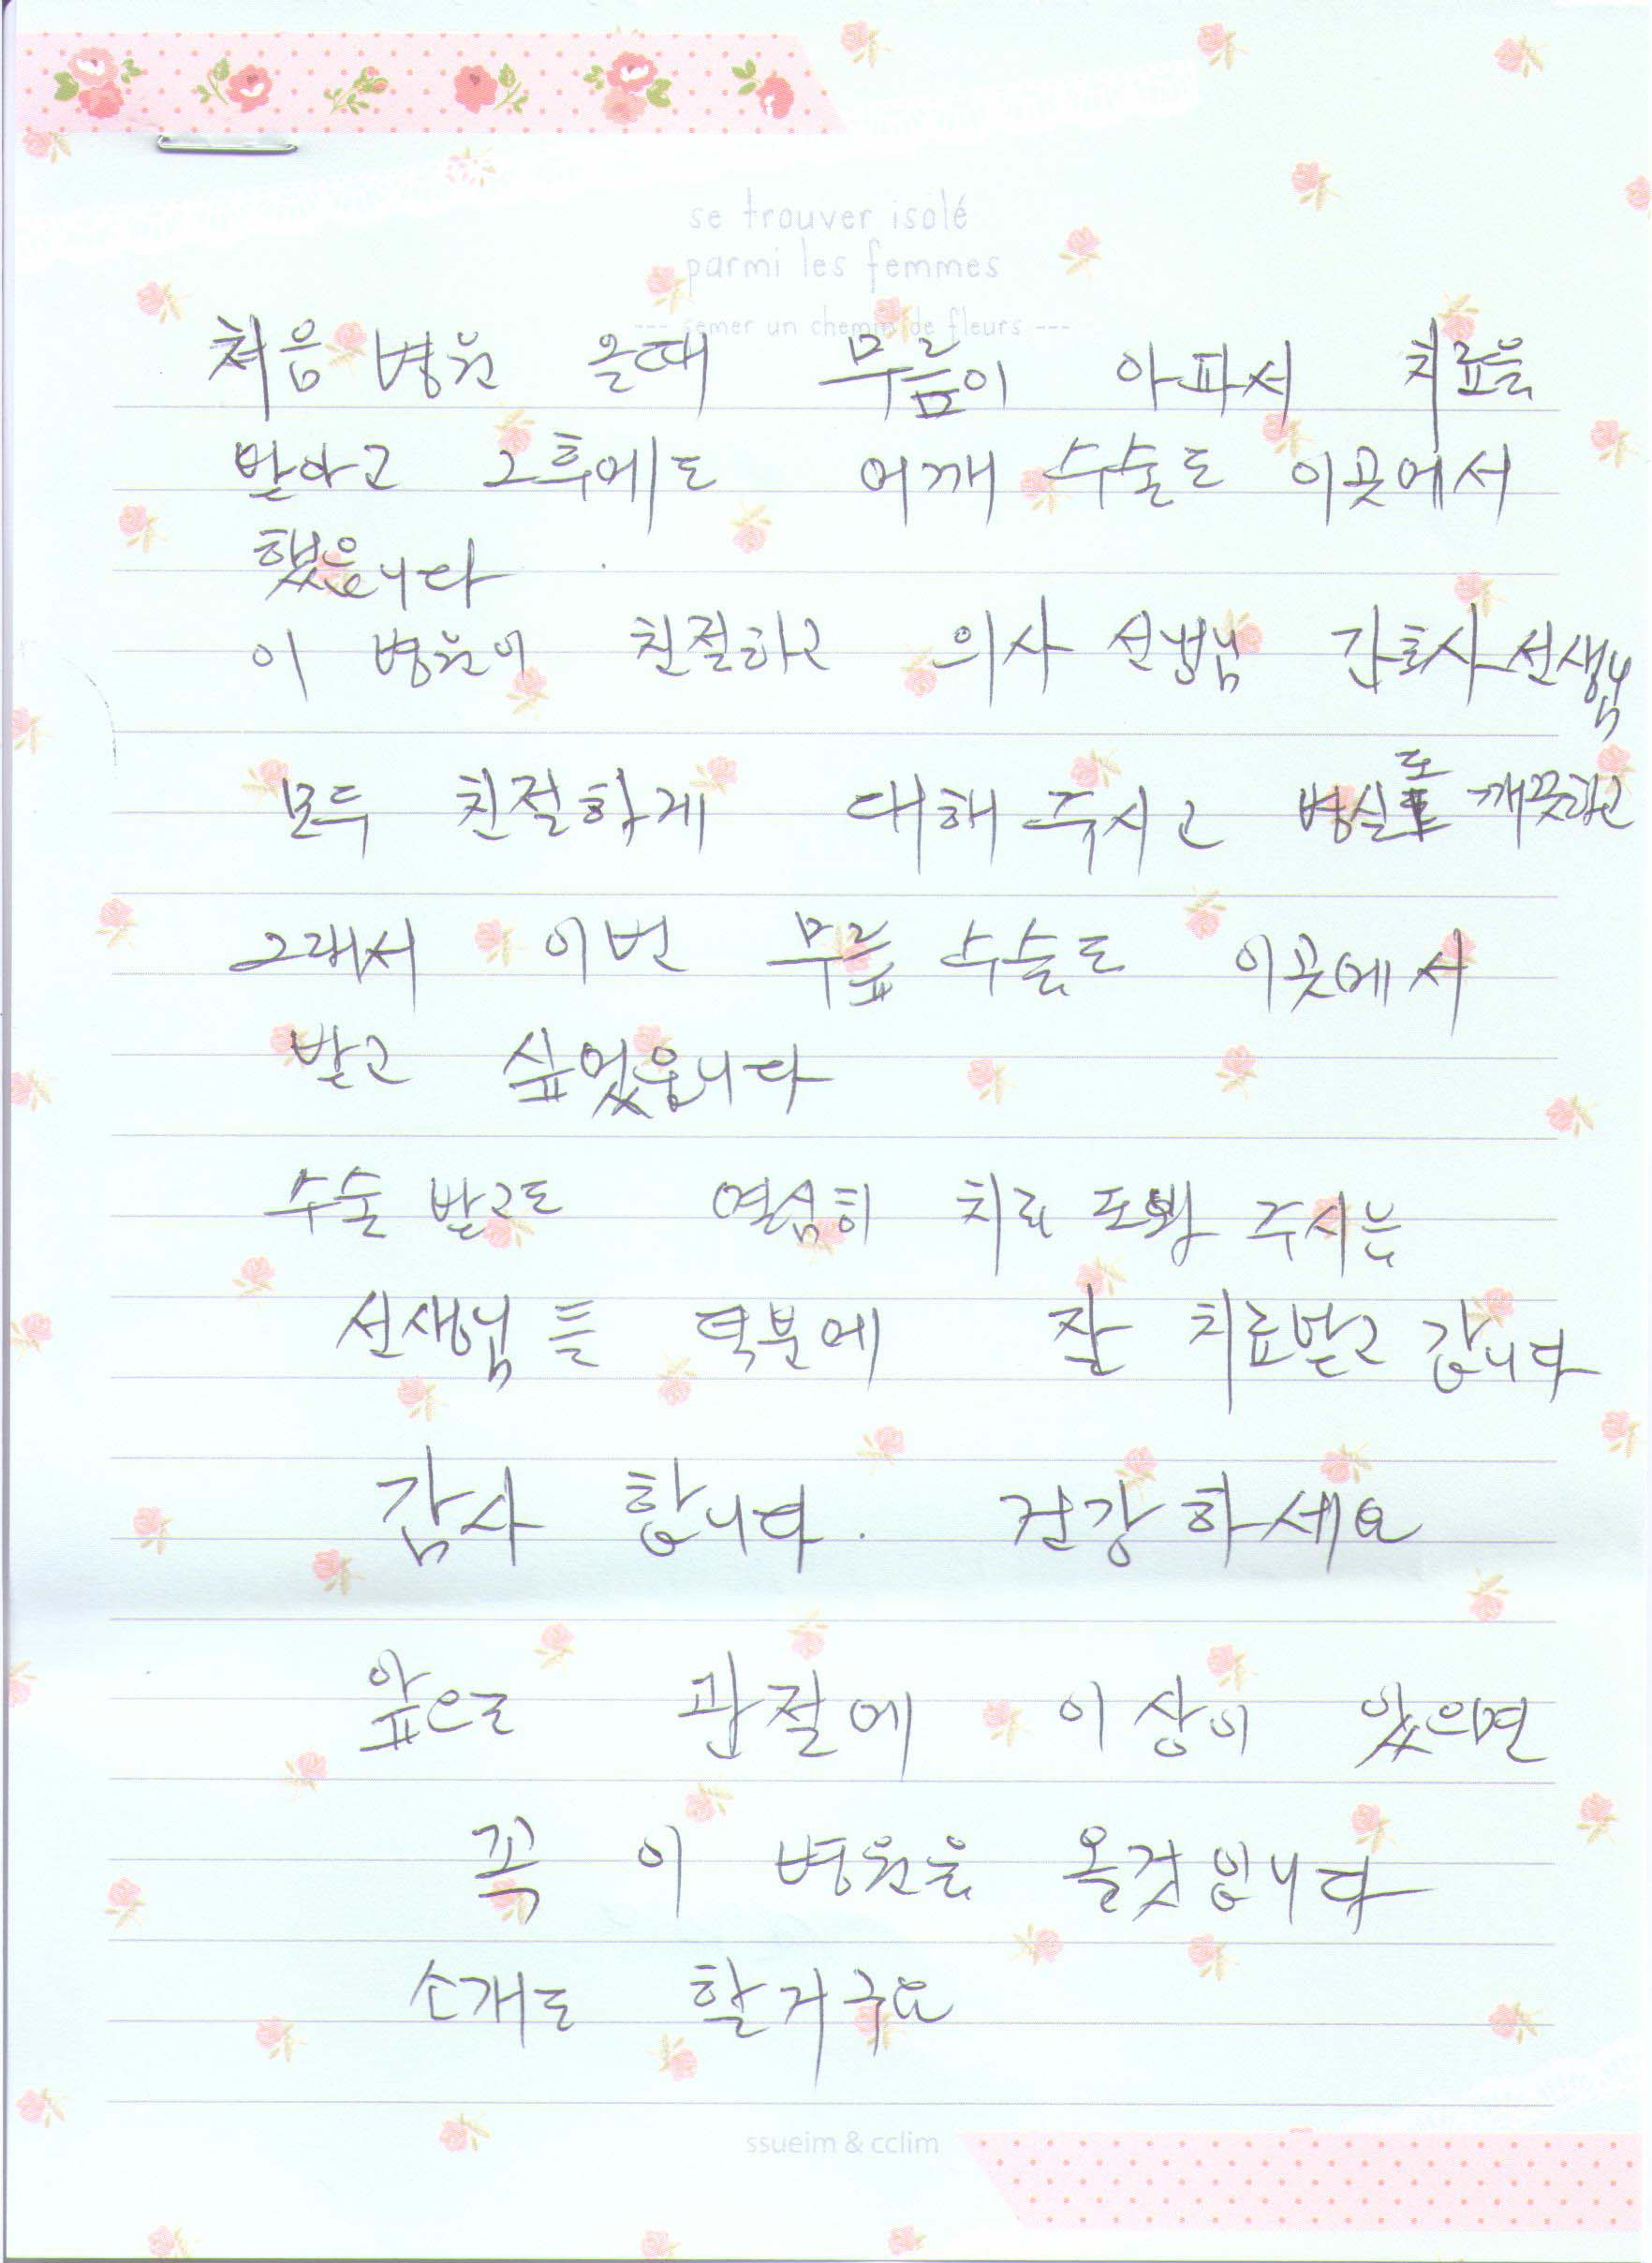 se trouver isolé
parmi les femmes
--- semer un chemin de fleurs ---
처음 병원 올때 무릎이 아파서 치료을
받아고 그후에도 어깨 수술도 이곳에서
했읍니다
이 병원이 친절하고 의사 선생님 간호사 선생님
모두 친절하게 대해 주시고 병실도 깨끗하고
그래서 이번 무릎 수술도 이곳에서
받고 싶었읍니다
수술 받고도 열심히 치료 주시는
선생님들 덕분에 잘 치료받고 갑니다
감사 합니다. 건강하세요
앞으로 관절에 이상이 있으면
꼭 이 병원을 올것입니다
소개도 할거구요
ssueim & cclim